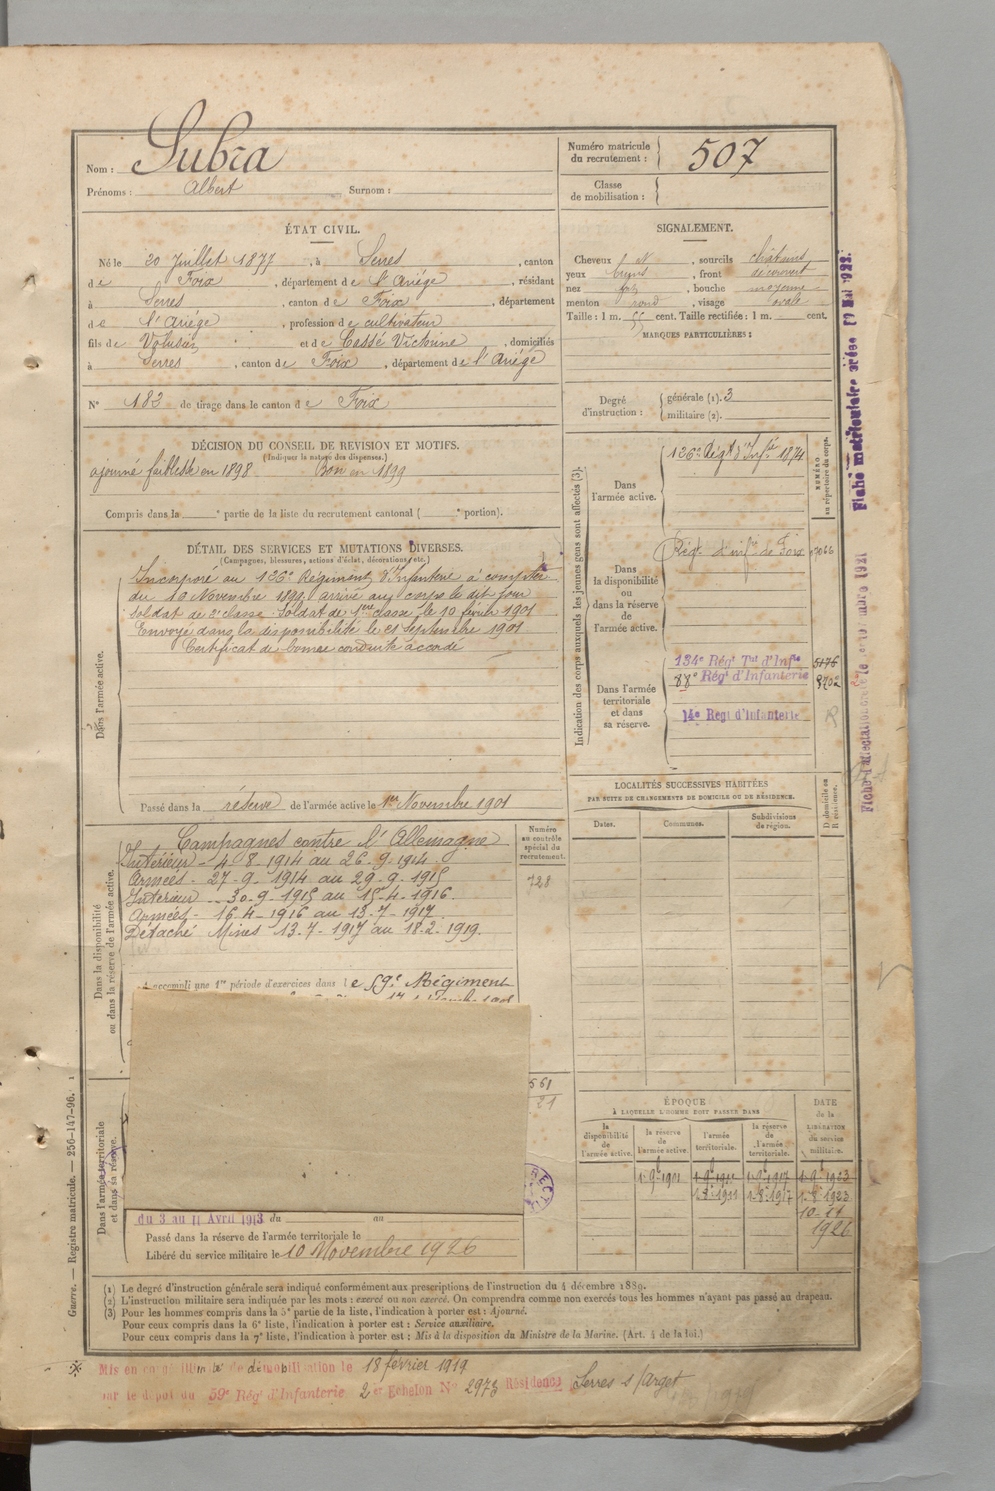 Nom : Subra
Prénoms : Albert Surnom :
Numéro matricule du recrutement : 507
Classe de mobilisation :
ÉTAT CIVIL.
Né le 20 Juillet 1877, à Serres, canton
de Foix, département de l'Ariége, résidant
à Serres, canton de Foix, département
de l'Ariége, profession de cultivateur
fils de Volusien et de Cassé Victorine, domiciliés
à Serres, canton de Foix, département de l'Ariége
N° 183 de tirage dans le canton de Foix
SIGNALEMENT.
Cheveux N, sourcils châtains
yeux bruns, front découvert
nez, bouche moyenne
menton rond, visage ovale
Taille : 1 m. 55 cent. Taille rectifiée : 1 m. cent.
MARQUES PARTICULIÈRES :
Degré d'instruction : générale (1). 3
militaire (2).
DÉCISION DU CONSEIL DE REVISION ET MOTIFS.
(Indiquer la nature des dispenses.)
ajourné faiblesse en 1898 Bon en 1899
Compris dans la ° partie de la liste du recrutement cantonal ( ° portion).
DÉTAIL DES SERVICES ET MUTATIONS DIVERSES.
(Campagnes, blessures, actions d'éclat, décorations, etc.)
Dans l'armée active.
Incorporé au 126e Régiment d'Infanterie à compter
du 10 Novembre 1899, arrivé au corps le dit jour
soldat de 2e classe. Soldat de 1ère classe le 10 février 1901
Envoyé dans la disponibilité le 21 Septembre 1901
Certificat de bonne conduite accordé
Passé dans la réserve de l'armée active le 1er Novembre 1901
Indication des corps auxquels les jeunes gens sont affectés (3).
NUMÉRO au répertoire du corps.
Dans l'armée active.
126e Régt d'Infie 1874
Dans la disponibilité ou dans la réserve de l'armée active.
Régt d'infie de Foix
Dans l'armée territoriale et dans sa réserve.
134e Régt Tal d'Infie 5176
88e Régt d'Infanterie
14e Regt d'Infanterie R
LOCALITÉS SUCCESSIVES HABITÉES
PAR SUITE DE CHANGEMENTS DE DOMICILE OU DE RÉSIDENCE.
Dates. Communes. Subdivisions de région. D domicile ou R résidence.
Dans la disponibilité ou dans la réserve de l'armée active.
Numéro au contrôle spécial du recrutement.
728
Campagnes contre l'Allemagne
Intérieur - 4-8-1914 au 26-9-1914.
Armées - 27-9-1914 au 29-9-1915
Intérieur - 30-9-1915 au 15-4-1916.
Armées - 16-4-1916 au 13-7-1917
Détaché Mines 13-7-1917 au 18-2-1919.
accompli une 1re période d'exercices dans le 59e Régiment
561
21
Dans l'armée territoriale et dans sa réserve.
du 3 au 11 Avril 1913 du au
Passé dans la réserve de l'armée territoriale le
Libéré du service militaire le 10 Novembre 1926
ÉPOQUE
À LAQUELLE L'HOMME DOIT PASSER DANS
la disponibilité de l'armée active. la réserve de l'armée active. l'armée territoriale. la réserve de l'armée territoriale. DATE de la LIBÉRATION du service militaire.
10-11
1926
(1) Le degré d'instruction générale sera indiqué conformément aux prescriptions de l'instruction du 4 décembre 1889.
(2) L'instruction militaire sera indiquée par les mots : exercé ou non exercé. On comprendra comme non exercés tous les hommes n'ayant pas passé au drapeau.
(3) Pour les hommes compris dans la 5e partie de la liste, l'indication à porter est : Ajourné.
Pour ceux compris dans la 6e liste, l'indication à porter est : Service auxiliaire.
Pour ceux compris dans la 7e liste, l'indication à porter est : Mis à la disposition du Ministre de la Marine. (Art. 4 de la loi.)
Mis en congé illimité de démobilisation le 18 février 1919
par le dépôt du 59e Régt d'Infanterie 2e Echelon N° 2973 Résidence Serres s/Arget
Guerre. — Registre matricule. — 256-147-96.
Fiche matriculaire créée 19 Mai 1922.